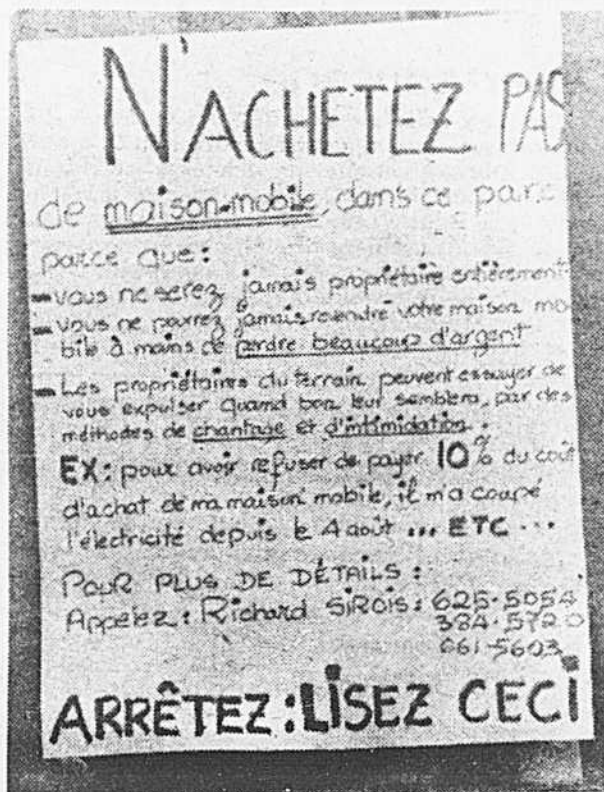 N'ACHETEZ PAS
de maison-mobile, dans ce parc
parce que:
- vous ne serez jamais propriétaire entièrement
- vous ne pourrez jamais revendre votre maison mo-
bile à moins de perdre beaucoup d'argent
- Les propriétaires du terrain peuvent essayer de
vous expulser quand bon leur semblera, par des
méthodes de chantage et d'intimidation.
EX: pour avoir refuser de payer 10% du coût
d'achat de ma maison mobile, il m'a coupé
l'électricité depuis le 4 août ... ETC ...
POUR PLUS DE DÉTAILS:
Appelez: Richard SIROIS: 625-5054
384-5720
661-5603
ARRÊTEZ: LISEZ CECI